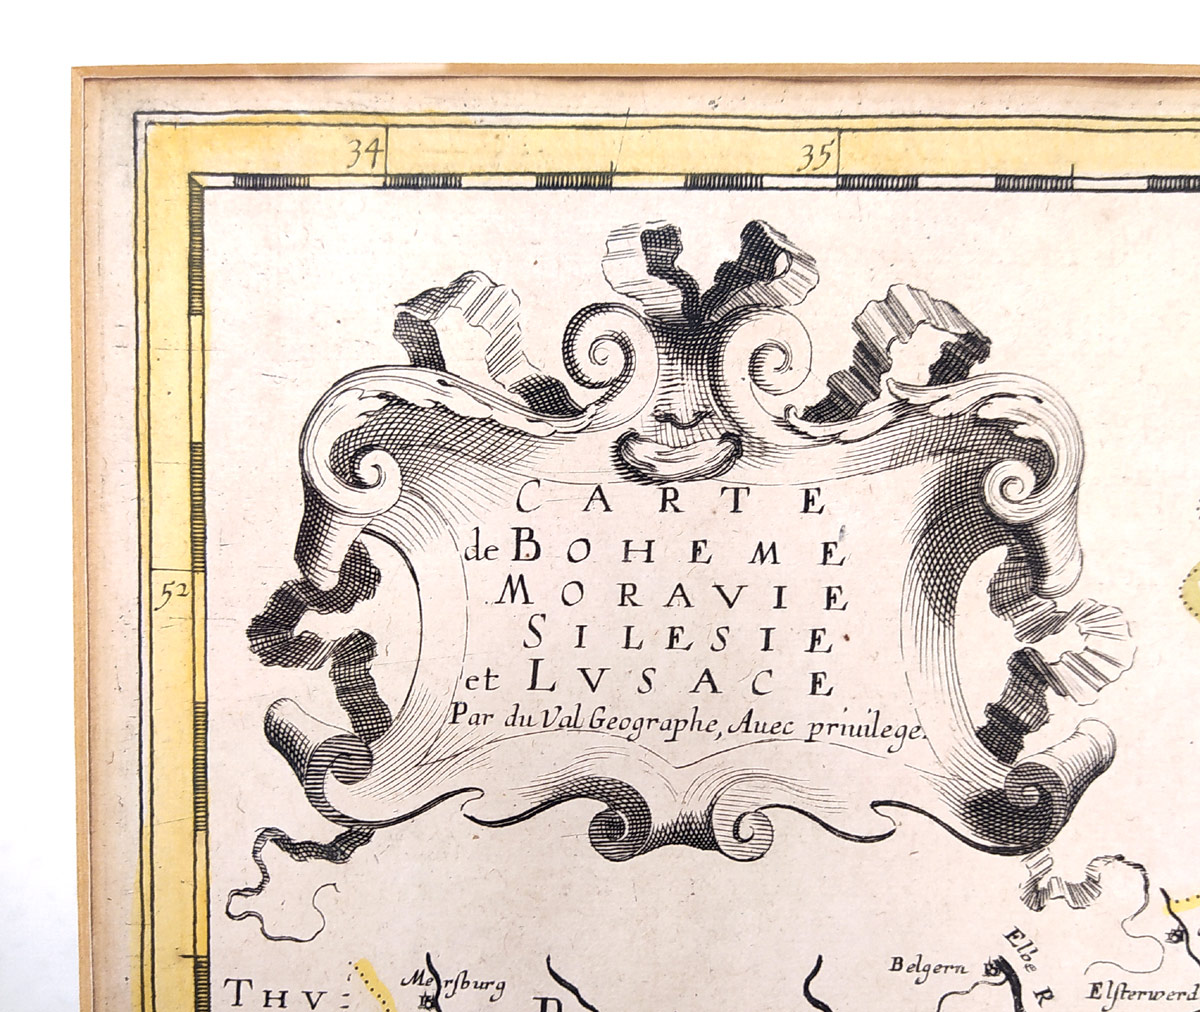 34 35
CARTE
de BOHEME
MORAVIE
SILESIE
et LVSACE
Par du Val Geographe, Auec priuilege.
52
Elbe R
Belgern
Mersburg
Elsterwerd
THV: